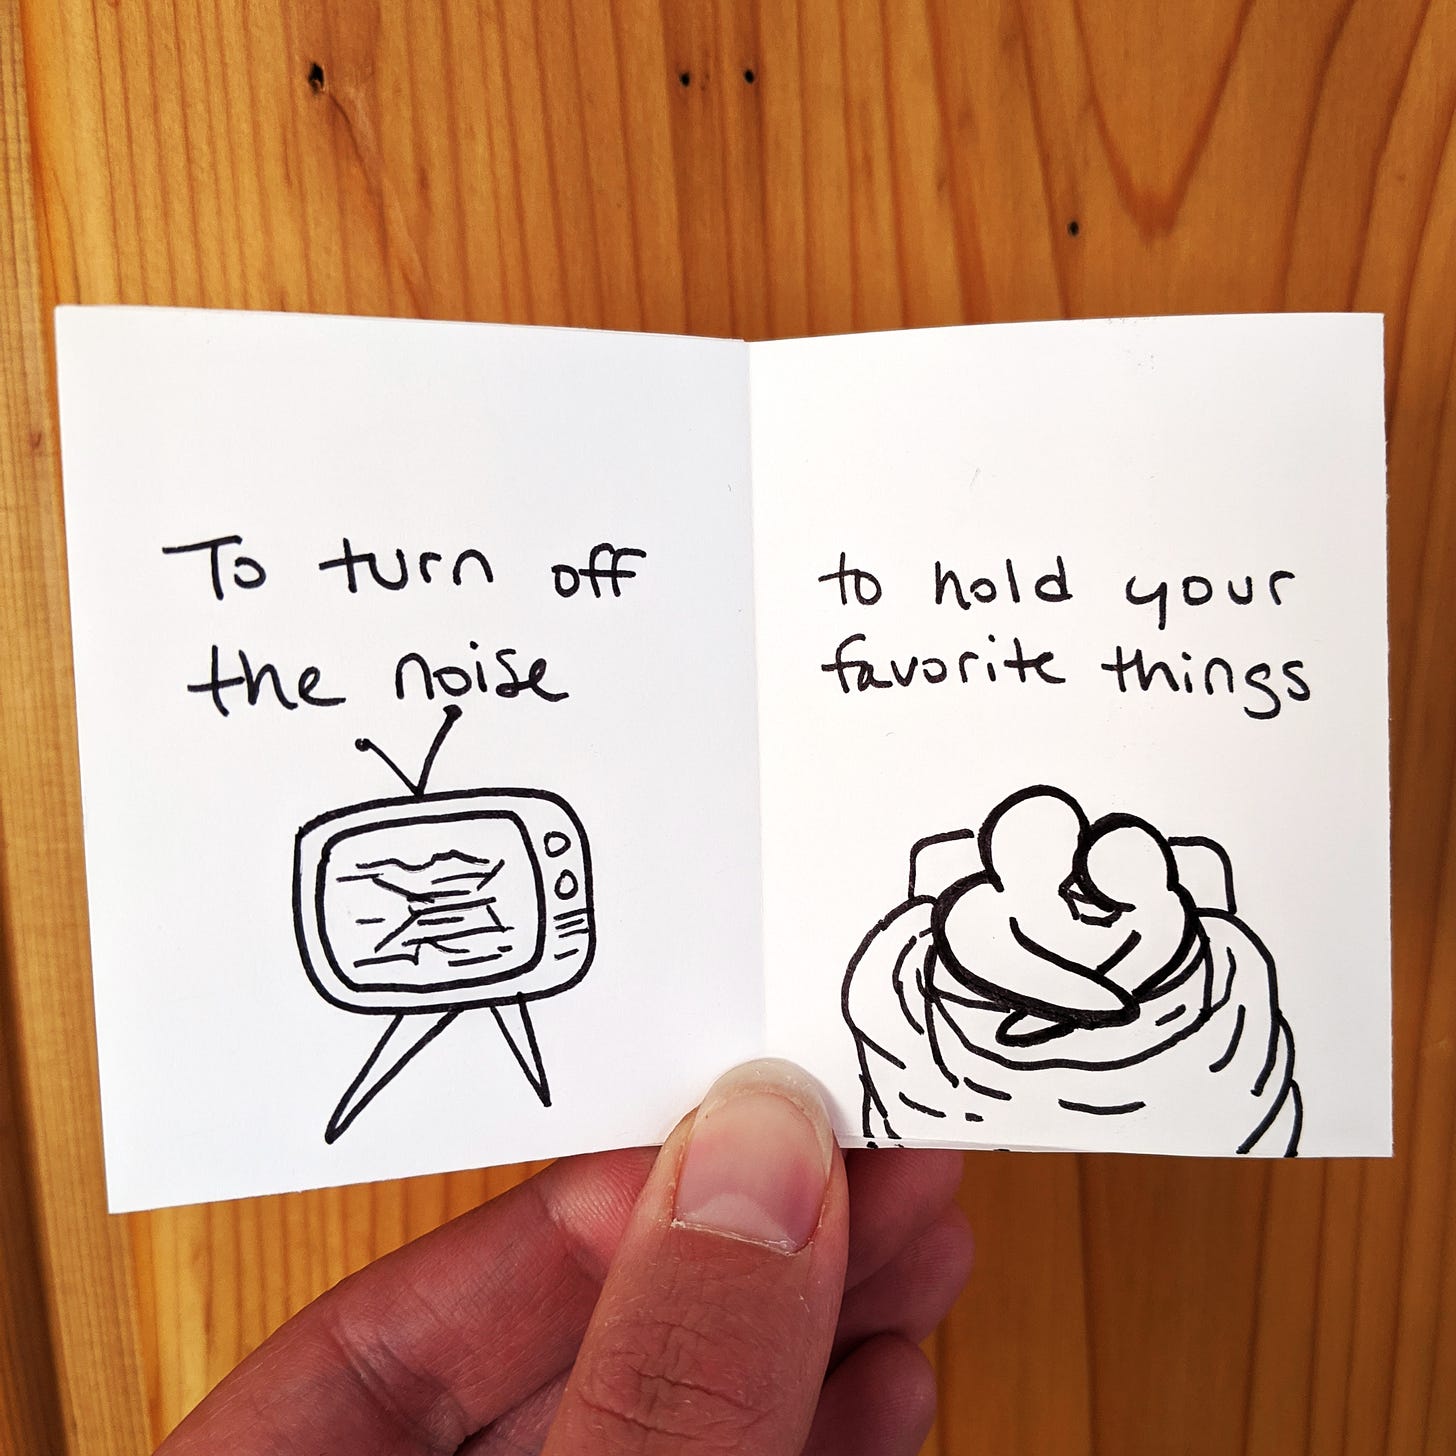 To turn off
the noise
to hold your
favorite things